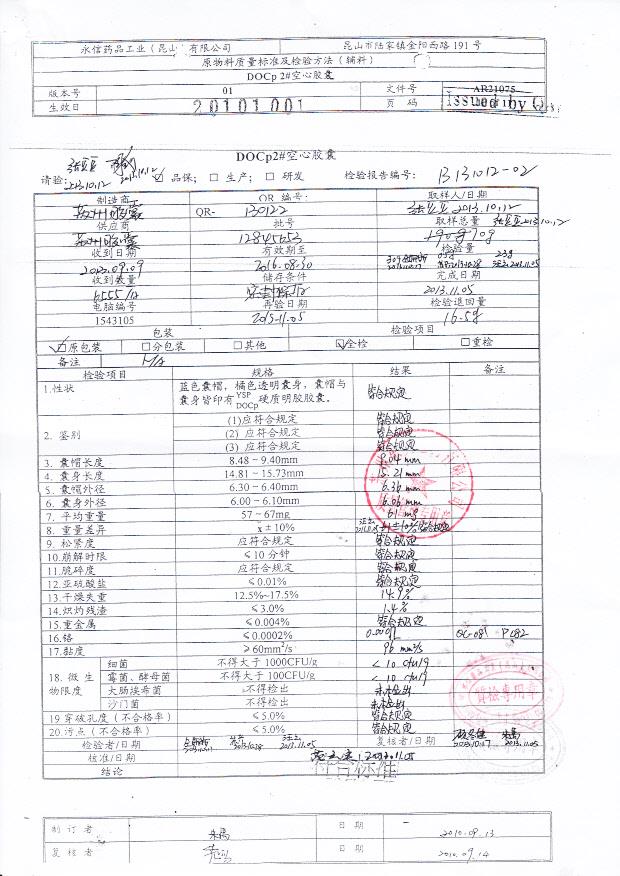 永信药品工业（昆山）有限公司 昆山市陆家镇金阳西路 191 号
原物料质量标准及检验方法（辅料）
DOCp 2#空心胶囊
版本号 01 文件号 AR21075
生效日 20101001 页 码 issued by Q
DOCp2#空心胶囊
请验: 2013.10.12 2013.10.12 ☑ 品保; □ 生产; □ 研发 检验报告编号: B131012-02
制造商 QR 编号: 取样人/日期
QR- 130122 2013.10.12
供应商 批号 取样总量
12845653
收到日期 有效期至 检验量
2016.08.30
收到数量 储存条件 完成日期
2013.11.05
电脑编号 再验日期 检验退回量
1543105 2015.11.05 16.5g
包装 检验项目
☑原包装 □分包装 □其他 ☑全检 □重检
备注 N/A
检验项目 规格 结果 备注
1.性状 蓝色囊帽，橘色透明囊身，囊帽与囊身皆印有 YSP DOCp 硬质明胶胶囊。 符合规定
2. 鉴别 (1)应符合规定 符合规定
(2) 应符合规定 符合规定
(3) 应符合规定 符合规定
3. 囊帽长度 8.48～9.40mm 9.04 mm
4. 囊身长度 14.81～15.73mm 15.21 mm
5. 囊帽外径 6.30～6.40mm 6.36 mm
6. 囊身外径 6.00～6.10mm 6.06 mm
7. 平均重量 57～67mg 61 mg
8. 重量差异 x±10% 符合规定
9. 松紧度 应符合规定 符合规定
10.崩解时限 ≤10 分钟 符合规定
11.脆碎度 应符合规定 符合规定
12.亚硫酸盐 ≤0.01% 符合规定
13.干燥失重 12.5%~17.5% 14.9%
14.炽灼残渣 ≤3.0% 1.4%
15.重金属 ≤0.004% 符合规定
16.铬 ≤0.0002% QC-081 P082
17.黏度 ≥60mm²/s 96 mm²/s
18. 微生物限度 细菌 不得大于 1000CFU/g <10 cfu/g
霉菌、酵母菌 不得大于 100CFU/g <10 cfu/g
大肠埃希菌 不得检出 未检出
沙门菌 不得检出 未检出
19 穿破孔度（不合格率） ≤5.0% 符合规定
20.污点（不合格率） ≤5.0% 符合规定
检验者/日期 2013.11.05 复核者/日期 2013.11.05
核准/日期 2013.11.05
结论 符合标准
制 订 者 朱禹 日 期 2010.09.13
复 核 者 日 期 2010.09.14